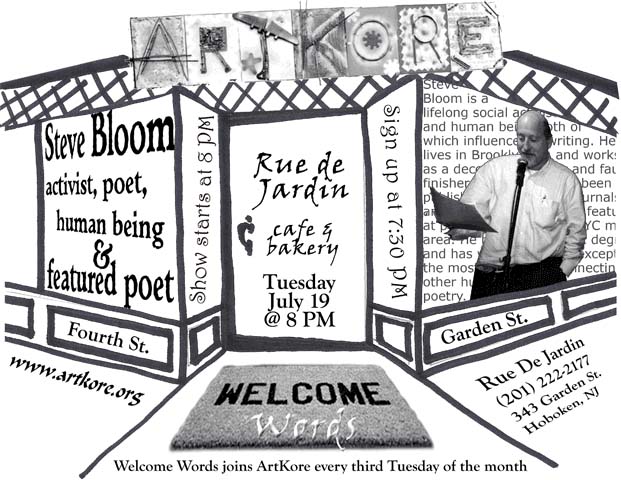 ARTKORE
Steve Bloom
activist, poet,
human being
&
featured poet
Show starts at 8 PM
Rue de
Jardin
cafe &
bakery
Tuesday
July 19
@ 8 PM
Sign up at 7:30 PM
Steve
Bloom is a
lifelong social
and human being
which influence writing. He
lives in Brooklyn and works
as a and
finisher been
area. He
and has except
the most
other
poetry.
Fourth St.
Garden St.
www.artkore.org
WELCOME
Words
Rue De Jardin
(201) 222-2177
343 Garden St.
Hoboken, NJ
Welcome Words joins ArtKore every third Tuesday of the month